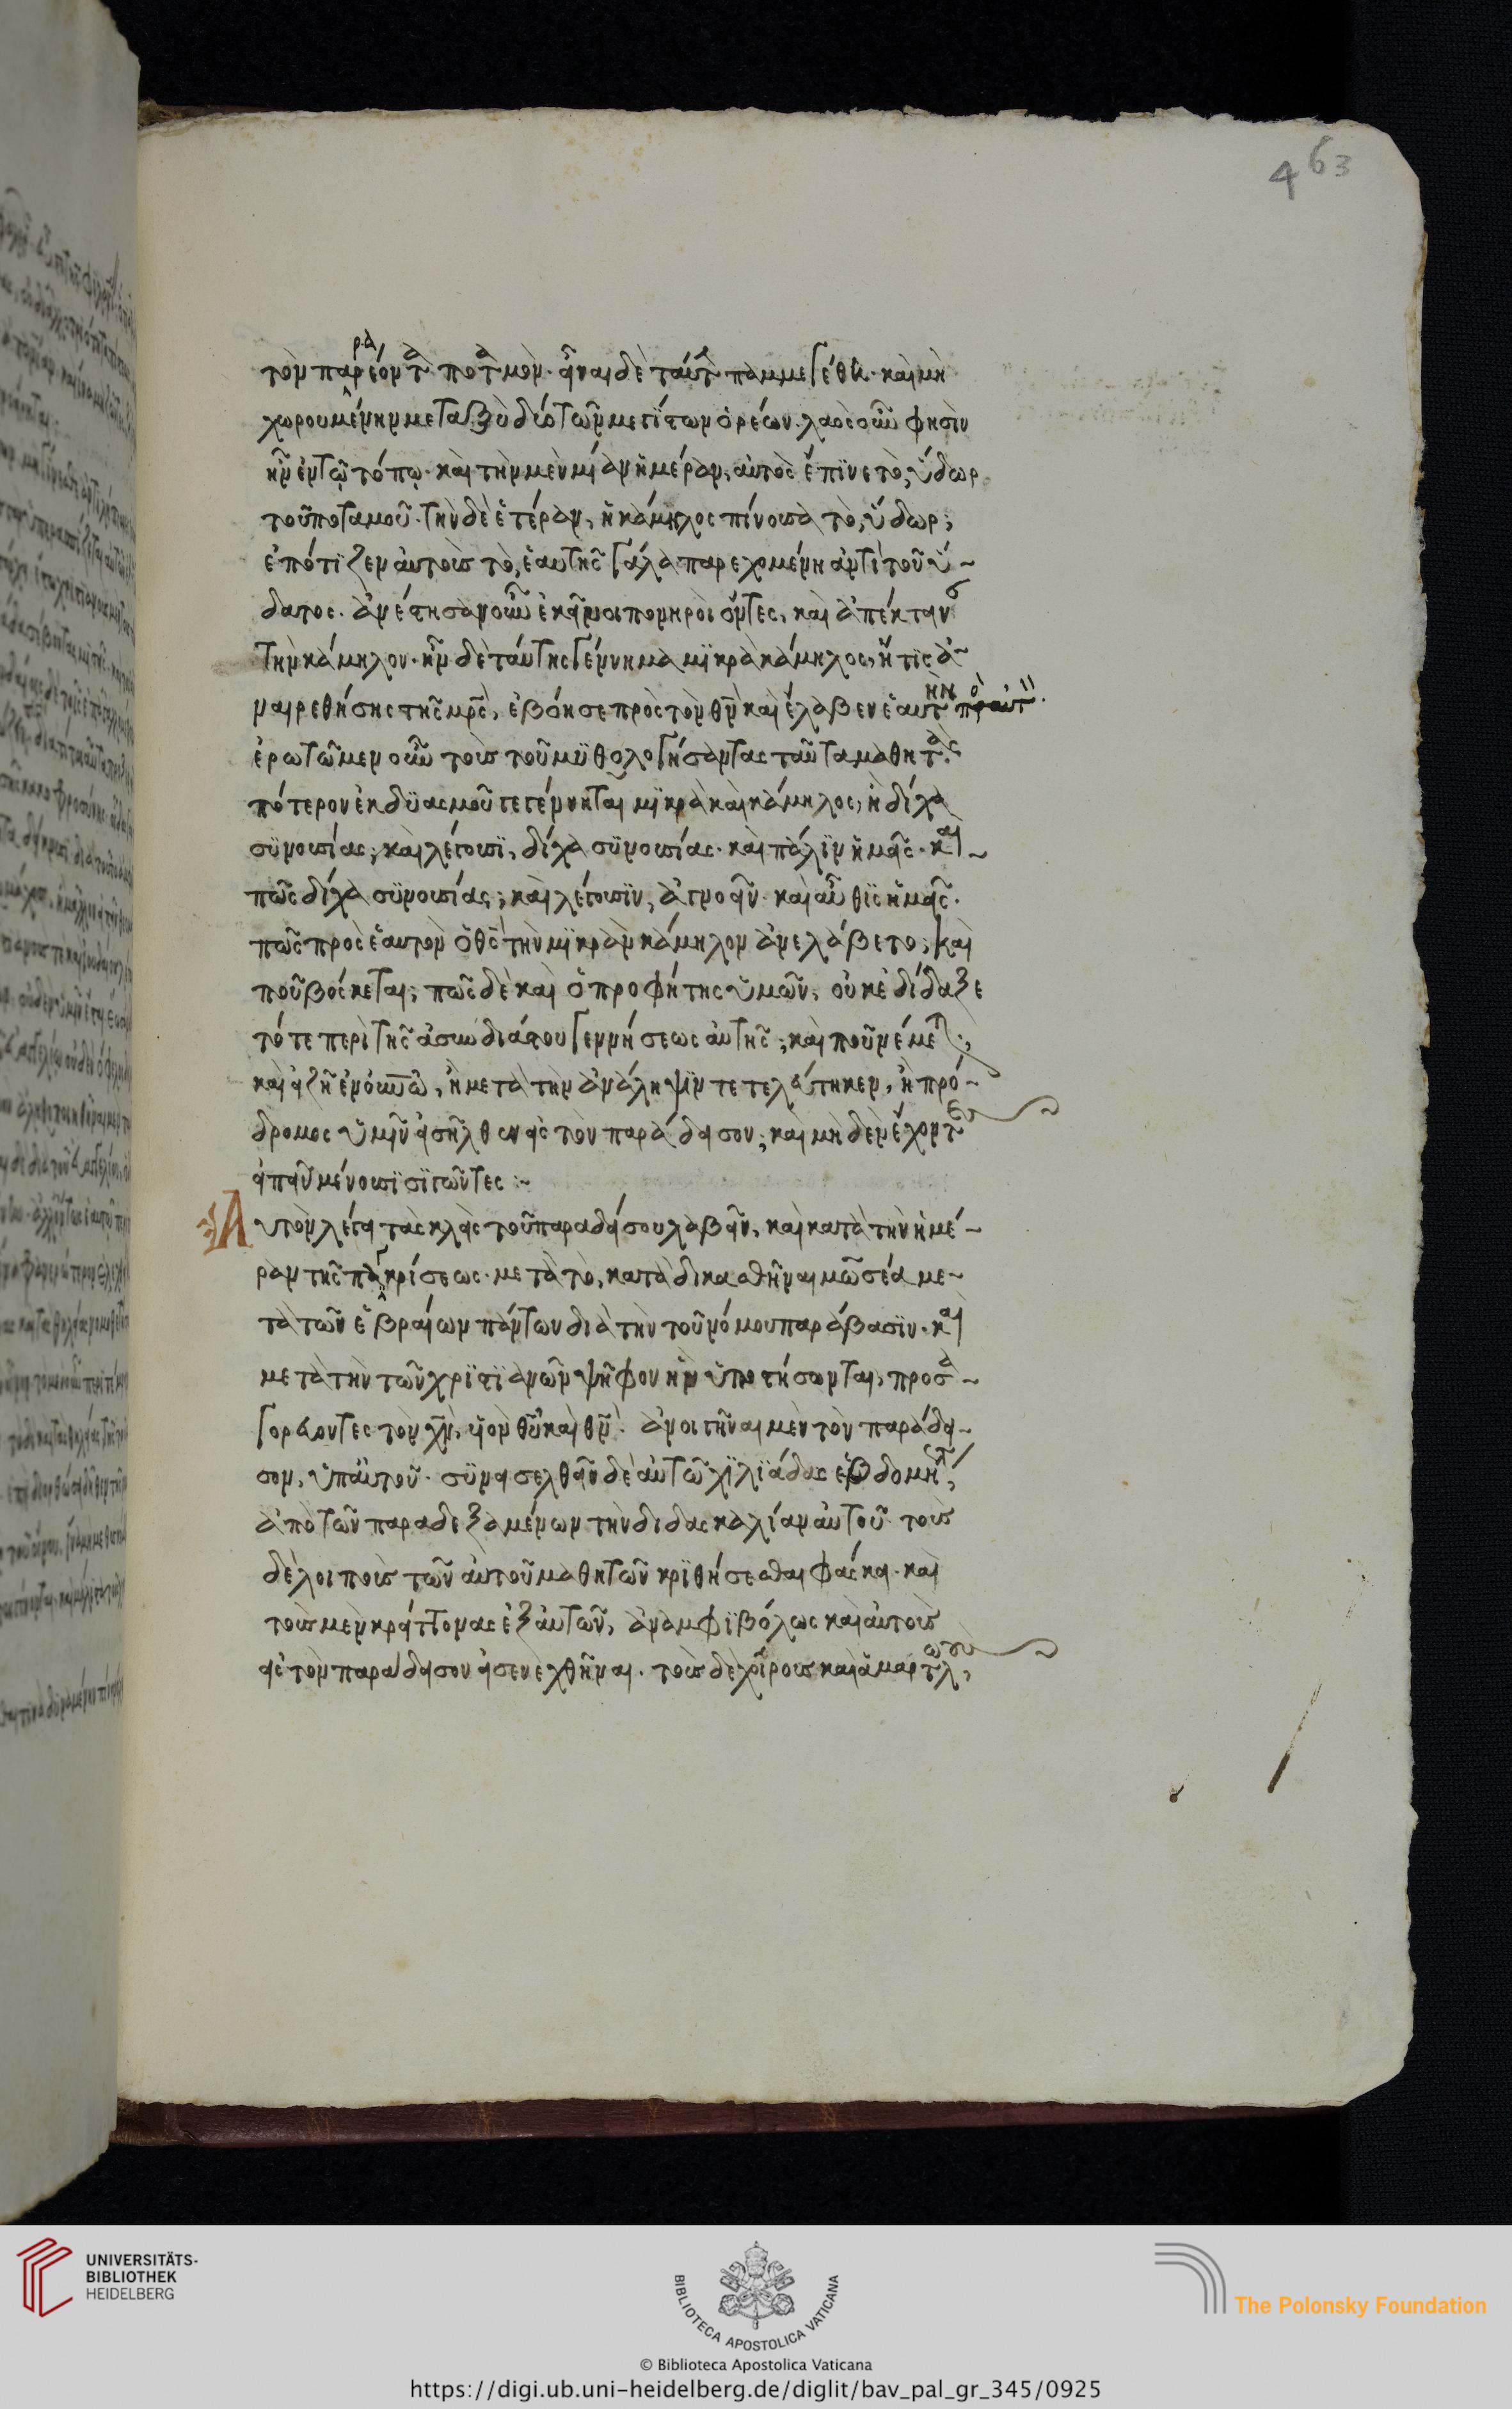 τὸν παραρέοντα ποταμὸν. εἶναι δὲ ταύτην παμμεγέθη. καὶ μὴ
χωρουμένην μεταξὺ δύο τῶν μεγίστων ὀρέων. λαὸς οὖν φησὶν
ἦν ἐν τῷ τόπῳ. καὶ τὴν μὲν μίαν ἡμέραν, αὐτὸς ἔπϊνε τὸ, ὕδωρ
τοῦ ποταμοῦ. τὴν δὲ ἑτέραν, ἡ κάμηλος πίνουσα τὸ, ὕδωρ;
ἐπότϊζεν αὐτοὺς τὸ, ἑαυτῆς γάλα παρεχομένη ἀντὶ τοῦ ὕ-
δατος. ἀνέστησαν οὖν ἐκεῖνοι πονηροὶ ὄντες, καὶ ἀπέκταν
τὴν κάμηλον. ἦν δὲ ταύτης γέννημα μϊκρὰ κάμηλος, ἥτϊς ἀ-
ναιρεθήσης τῆς μρς, ἐβόησε πρὸς τὸν θν καὶ ἔλαβεν ἑαυτὴν πρὸ αὐτ.
ἐρωτῶμεν οὖν τοὺς τοῦ μϋθολογήσαντας ταῦτα μαθητάς.
πότερον ἐκ δϋασμοῦ γεγέννηται μϊκρὰ καὶ κάμηλος, ἢ δίχα
σϋνουσίας; καὶ λέγουσϊ, δίχα σϋνουσίας. καὶ πάλϊν ἡμεῖς. καὶ
πῶς δίχα σϋνουσίας; καὶ λέγουσϊν, ἀγνοεῖν. καὶ αὖθϊς ἡμεῖς.
πῶς πρὸς ἑαυτὸν ὁ θς τὴν μϊκρὰν κάμηλον ἀνελάβετο; καὶ
ποῦ βόσκεται; πῶς δὲ καὶ ὁ προφήτης ὑμῶν, οὐκ ἐδίδαξε
τότε περὶ τῆς ἀσυνδιάστου γεννήσεως αὐτῆς; καὶ ποῦ μένει;
καὶ εἰ ζῇ ἐνόσω, ἢ μετὰ τὴν ἀνάληψιν τετελεύτηκεν, ἢ πρό-
δρομος ὑμῖν εἰσῆλθεν εἰς τὸν παράδεισον; καὶ μὴ δὲν ἔχοντες
εἰπεῖν μένουσϊ σϊγῶντες :-
Αὐτὸν λέγει τὰς κλεῖς τοῦ παραδείσου λαβεῖν, καὶ κατὰ τὴν ἡμέ-
ραν τῆς κρίσεως. μετὰ τὸ, καταδικασθῆναι μωσέα με-
τὰ τῶν ἑβραίων πάντων διὰ τὴν τοῦ νόμου παράβασϊν. καὶ
μετὰ τὴν τῶν χρϊστϊανῶν ψῆφον ἣν ὑποστήσωνται, προσα-
γορεύοντες τὸν χν, υἱὸν θυ καὶ θν. ἀνοιγῆναι μὲν τὸν παράδει-
σον, ὑπαὐτοῦ. σϋνεισελθεῖν δὲ αὐτῶ χϊλϊάδας ἑβδομήκ
ἀπὸ τῶν παραδεξαμένων τὴν διδασκαλίαν αὐτοῦ τοὺς
δὲ λοιποὺς τῶν αὐτοῦ μαθητῶν κρϊθήσεσθαι φάσκει. καὶ
τοὺς μὲν κρείττονας ἐξ αὐτῶν, ἀναμφϊβόλως καὶ αὐτοὺς
εἰς τὸν παράδεισον εἰσενεχθῆναι. τοὺς δὲ χείρους καὶ ἁμαρτωλοὺς,
463
UNIVERSITÄTS-
BIBLIOTHEK
HEIDELBERG
BIBLIOTECA APOSTOLICA VATICANA
© Biblioteca Apostolica Vaticana
The Polonsky Foundation
https://digi.ub.uni-heidelberg.de/diglit/bav_pal_gr_345/0925